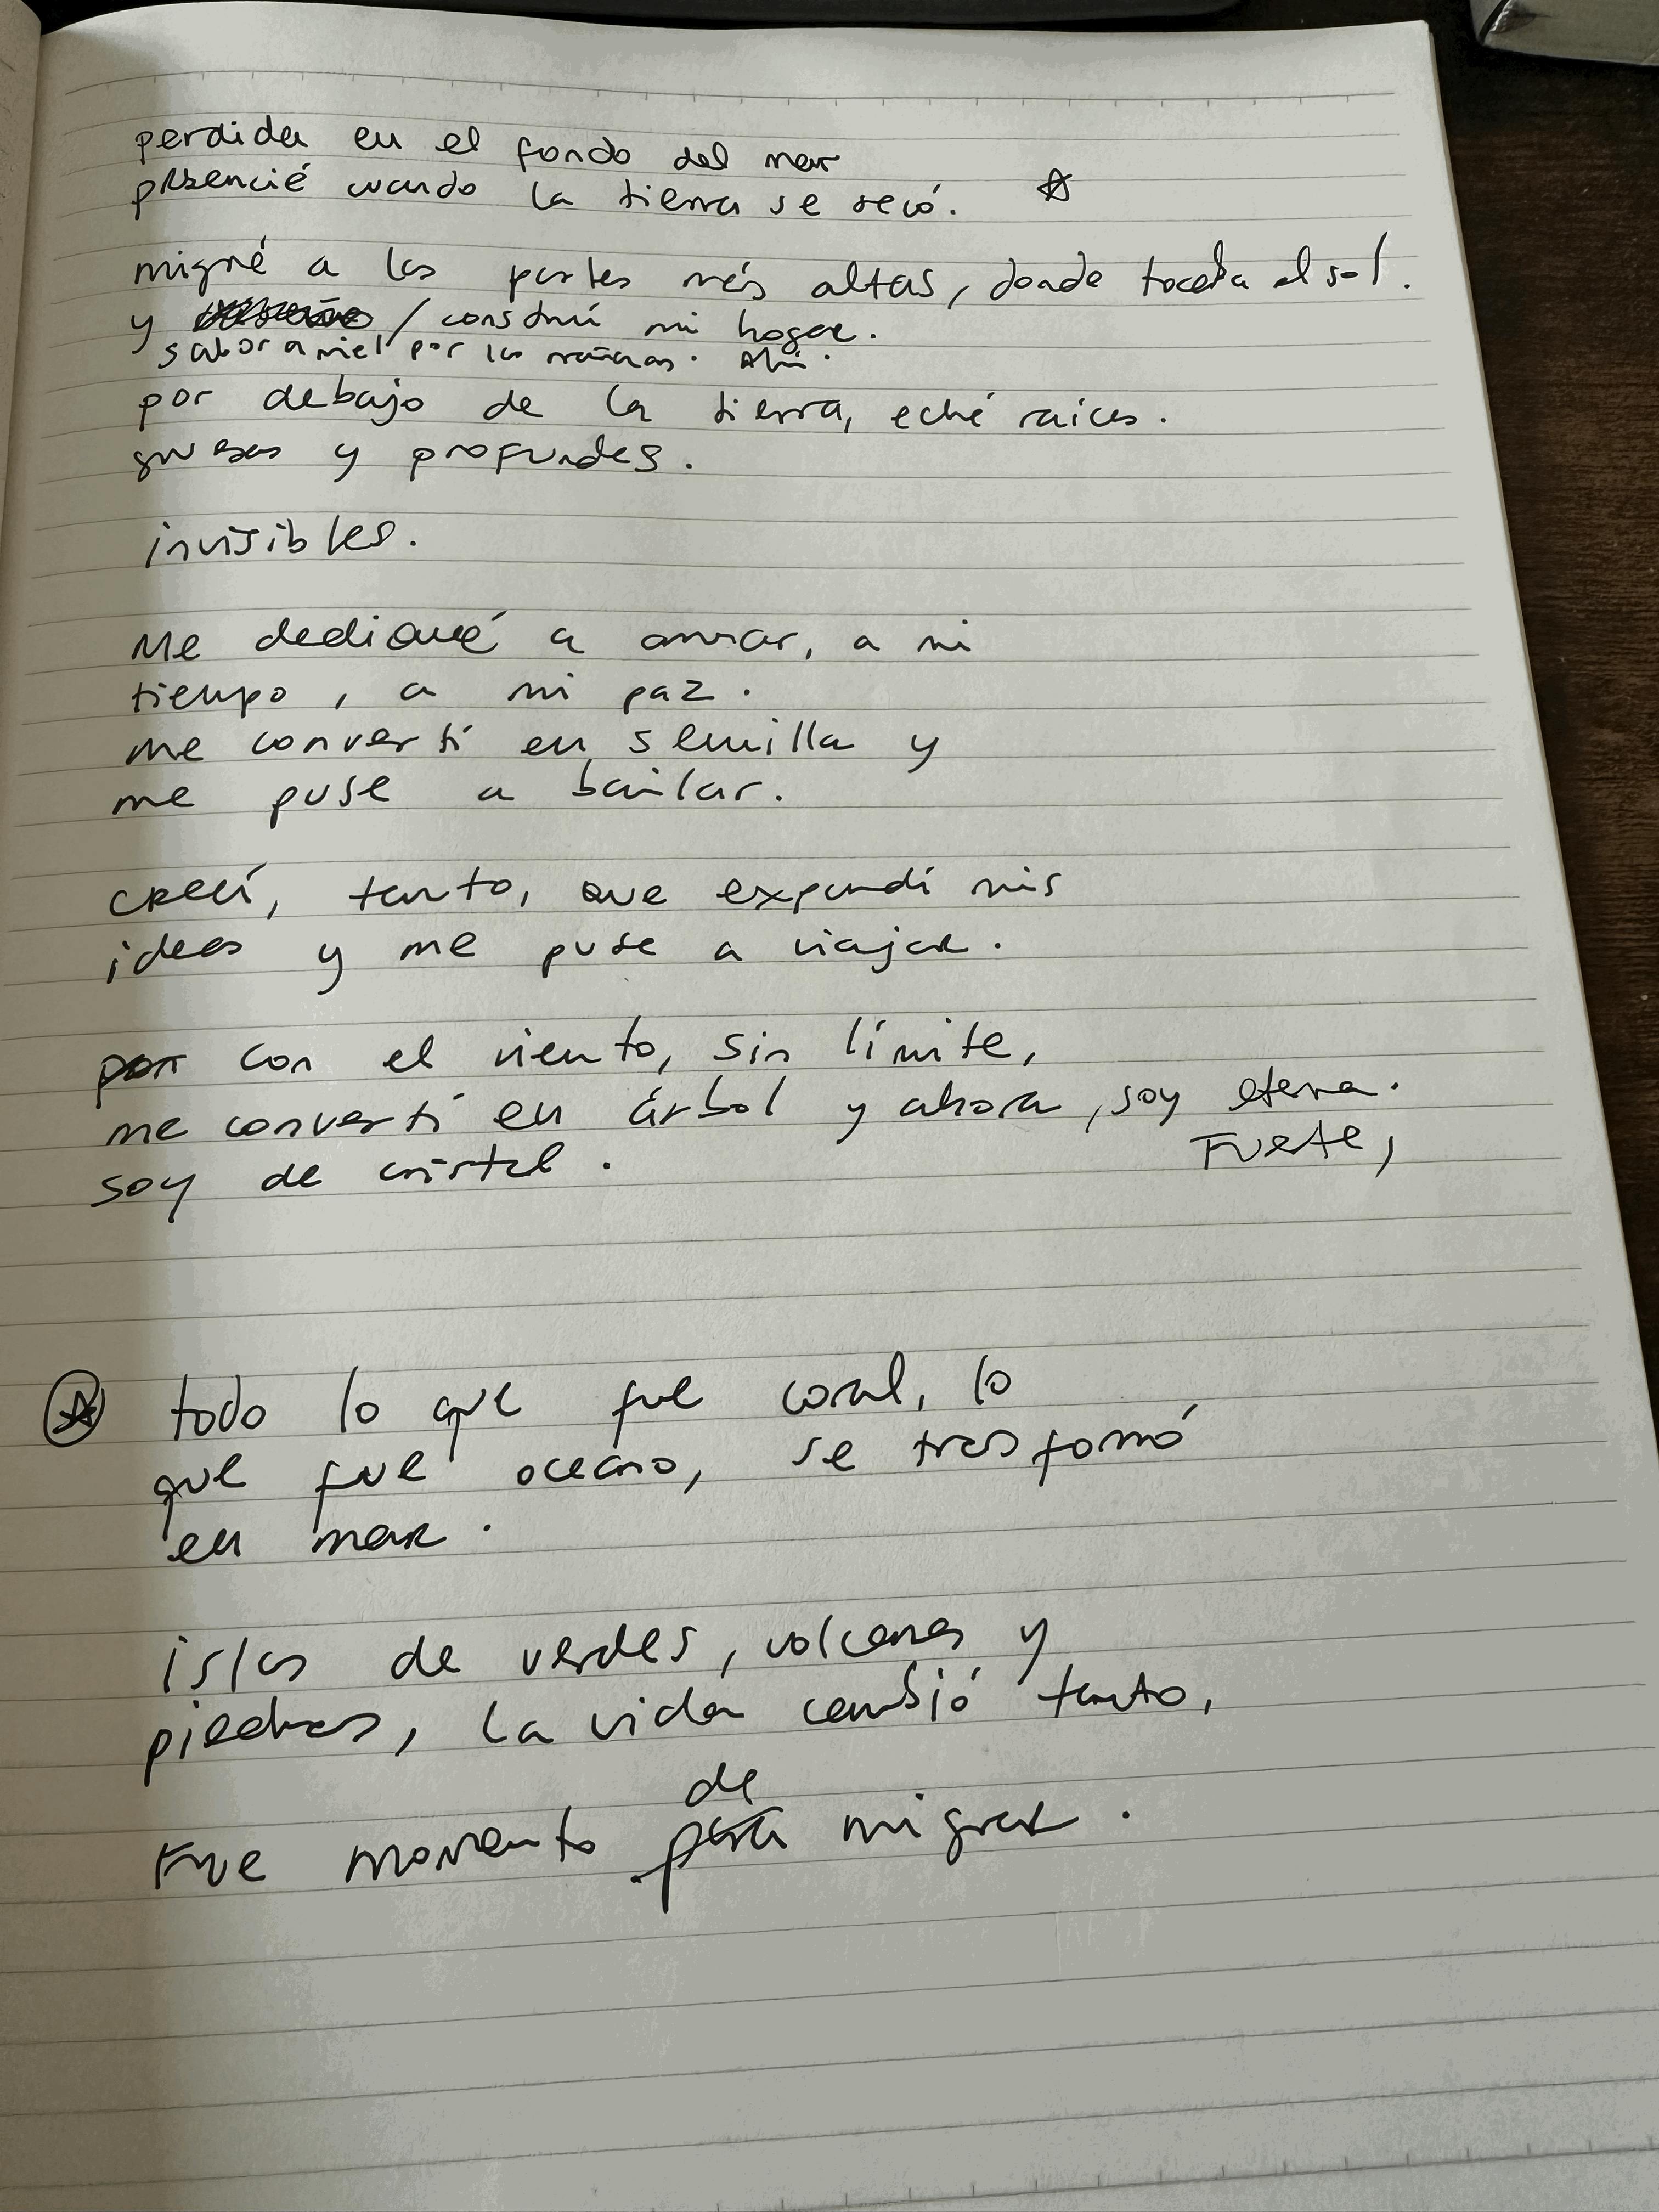 perdida en el fondo del mar
presencié cuando la tierra se secó. ☆
migré a las partes más altas, donde tocaba el sol.
y / construí mi hogar.
sabor a miel por las mañanas. Ahí.
por debajo de la tierra, eché raíces.
gruesas y profundas.
invisibles.
Me dediqué a amar, a mi
tiempo, a mi paz.
me convertí en semilla y
me puse a bailar.
crecí, tanto, que expandí mis
ideas y me puse a viajar.
por con el viento, sin límite,
me convertí en árbol y ahora, soy eterna.
Fuerte,
soy de cristal.
☆ todo lo que fue coral, lo
que fue océano, se trasformó
en mar.
islas de verdes, volcanes y
piedras, la vida cambió tanto,
de
Fue momento para migrar.